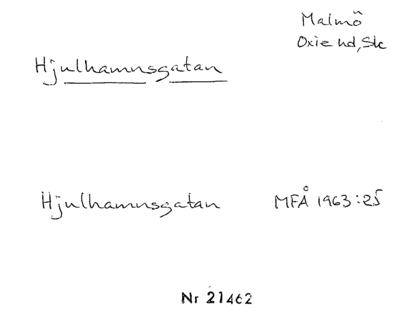 Malmö
Oxie hd, Sk
Hjulhamnsgatan
Hjulhamnsgatan MFÅ 1963:25
Nr 21462